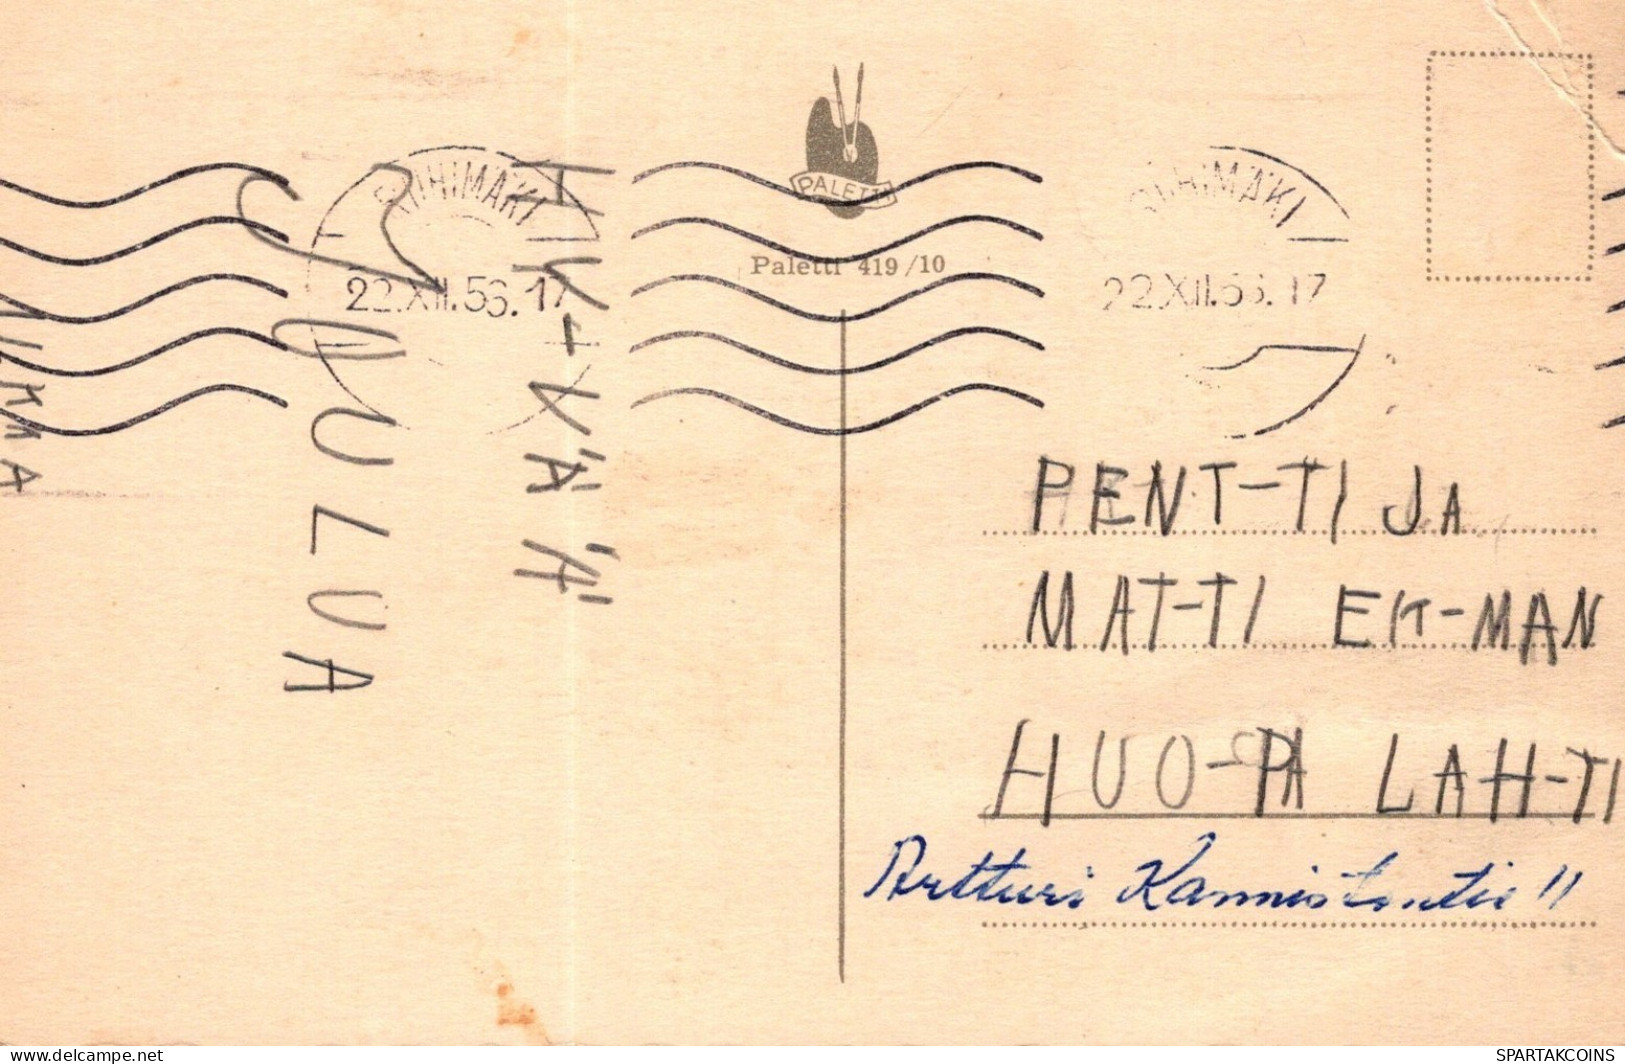 HYVÄÄ
JOULUA
PALETTI
Paletti 419/10
RIIHIMÄKI
22.XII.56.17
RIIHIMÄKI
22.XII.56.17
PENT-TI JA
MAT-TI EK-MAN
HUO-PA LAH-TI
Artturi Kannistontie 11
delcampe.net
SPARTAKCOINS